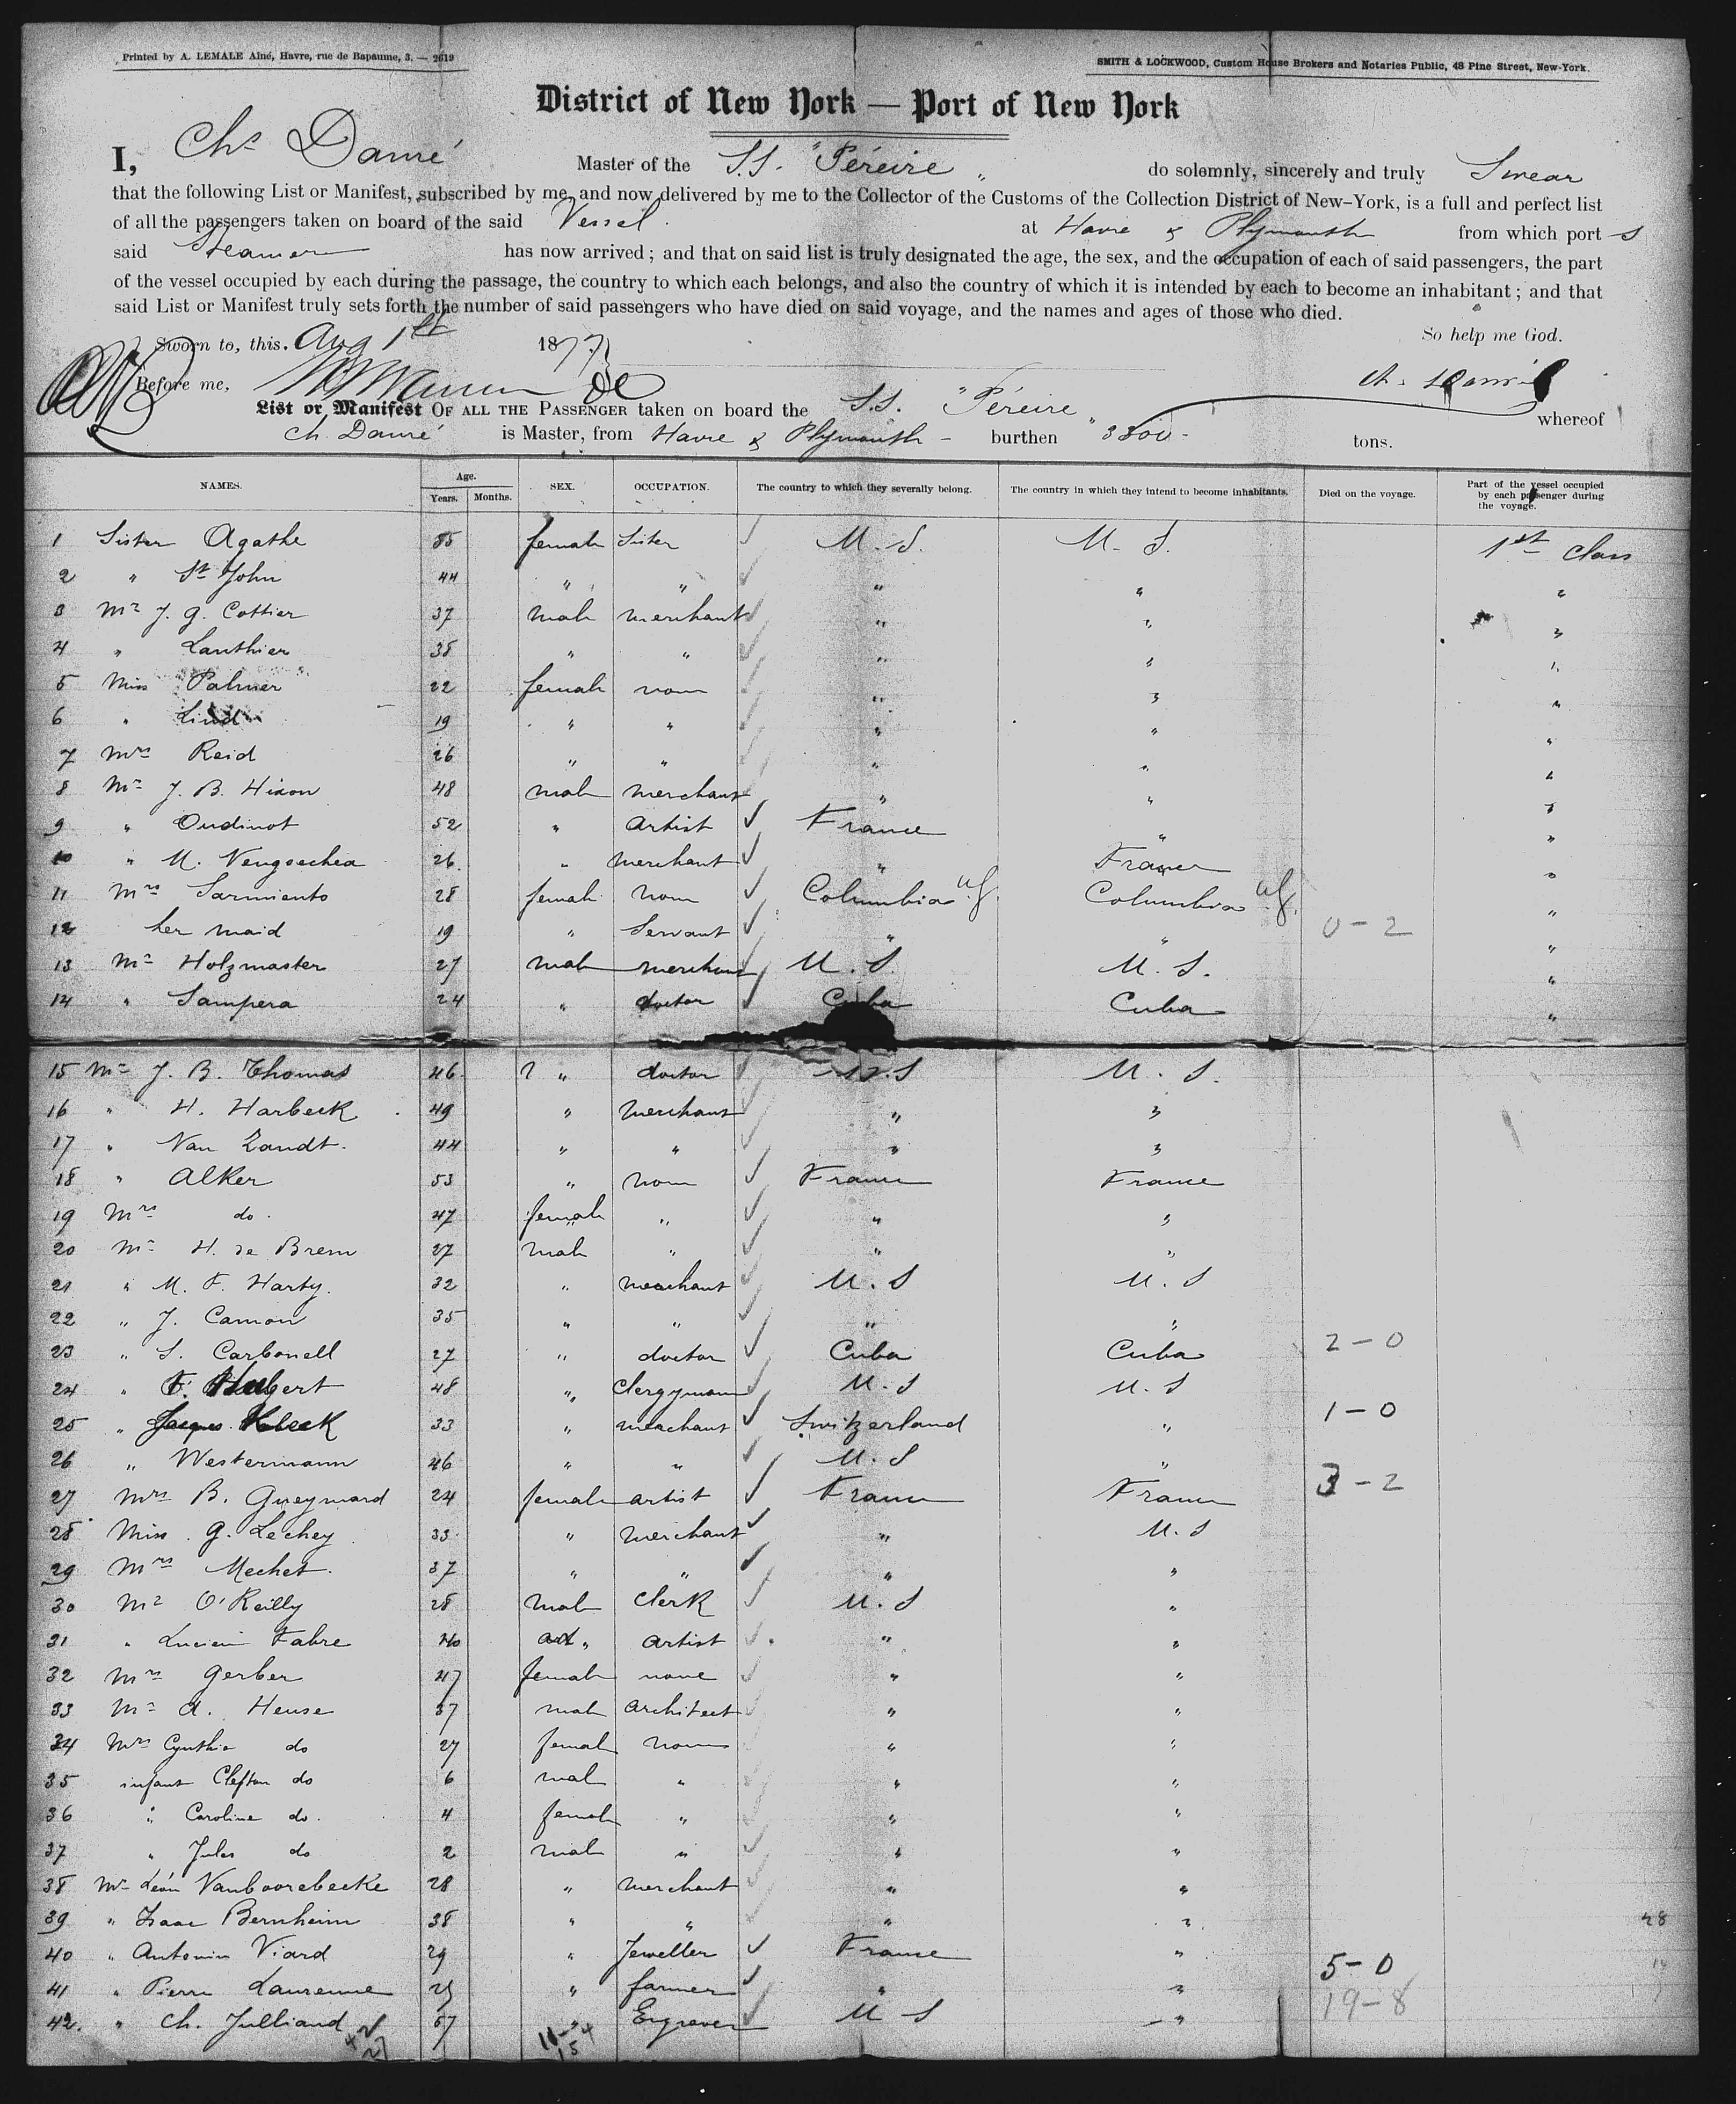 Printed by A. LEMALE Aîné, Havre, rue de Bapaume, 3. — 2619
SMITH & LOCKWOOD, Custom House Brokers and Notaries Public, 48 Pine Street, New-York.
District of New York — Port of New York
I, Chs Danré Master of the S.S. "Péreire" do solemnly, sincerely and truly Swear
that the following List or Manifest, subscribed by me, and now delivered by me to the Collector of the Customs of the Collection District of New-York, is a full and perfect list
of all the passengers taken on board of the said Vessel at Havre & Plymouth from which port s
said Steamer has now arrived ; and that on said list is truly designated the age, the sex, and the occupation of each of said passengers, the part
of the vessel occupied by each during the passage, the country to which each belongs, and also the country of which it is intended by each to become an inhabitant ; and that
said List or Manifest truly sets forth the number of said passengers who have died on said voyage, and the names and ages of those who died.
Sworn to, this. Aug 1st 1877 So help me God.
Before me,
List or Manifest OF ALL THE PASSENGER taken on board the S.S. "Péreire" whereof
Ch. Danré is Master, from Havre & Plymouth - burthen 3300 - tons.
NAMES. Age. Years. Months. SEX. OCCUPATION. The country to which they severally belong. The country in which they intend to become inhabitants. Died on the voyage. Part of the vessel occupied by each passenger during the voyage.
1 Sister Agathe 35 female Sister U. S. U. S. 1st Class
2 " St John 44 " " " " "
3 Mr J. G. Cottier 37 male merchant " " "
4 " Lanthier 38 " " " " "
5 Miss Palmer 22 female none " " "
6 " Lind 19 " " " " "
7 Mrs Reid 26 " " " " "
8 Mr J. B. Hixon 48 male merchant " " "
9 " Oudinot 52 " artist France " "
10 " M. Nengoechea 26 " merchant " France "
11 Mrs Sarmiento 28 female none Columbia Columbia "
12 her maid 19 " Servant " " 0-2 "
13 Mr Holzmaster 27 male merchant U. S. U. S. "
14 " Sampera 24 " doctor Cuba Cuba "
15 Mr J. B. Thomas 46 " doctor U.S U. S.
16 " H. Harbeck 49 " merchant " "
17 " Van Zandt. 44 " " " "
18 " Alker 53 " none France France
19 Mrs do. 47 female " " "
20 Mr H. de Brem 27 male " " "
21 " M. F. Harty. 32 " merchant U. S U. S
22 " J. Camon 35 " " " "
23 " S. Carbonell 27 " doctor Cuba Cuba 2-0
24 " F. Hubert 48 " Clergyman U. S U. S
25 " Jacques 33 " merchant Switzerland " 1-0
26 " Westermann 46 " " U. S "
27 Mrs B. Gueymard 24 female artist France France 3-2
28 Miss G. Lechey 33 " merchant " U. S
29 Mrs Mechet. 37 " " " "
30 Mr O'Reilly 28 male Clerk U. S "
31 " Lucien Fabre 40 " artist " "
32 Mrs Gerber 47 female none " "
33 Mr A. Heuse 37 male architect " "
34 Mrs Cynthia do 27 female none " "
35 infant Clefton do 6 male " " "
36 " Caroline do. 4 female " " "
37 " Jules do 2 male " " "
38 Mr Léon Vanboorebecke 28 " merchant " "
39 " Isaac Bernheim 38 " " " "
40 " Antonin Viard 29 " Jeweller France " 5-0
41 " Pierre Laurenne 25 " farmer " " 19-8
42. " Ch. Julliand 57 " Engraver U S "